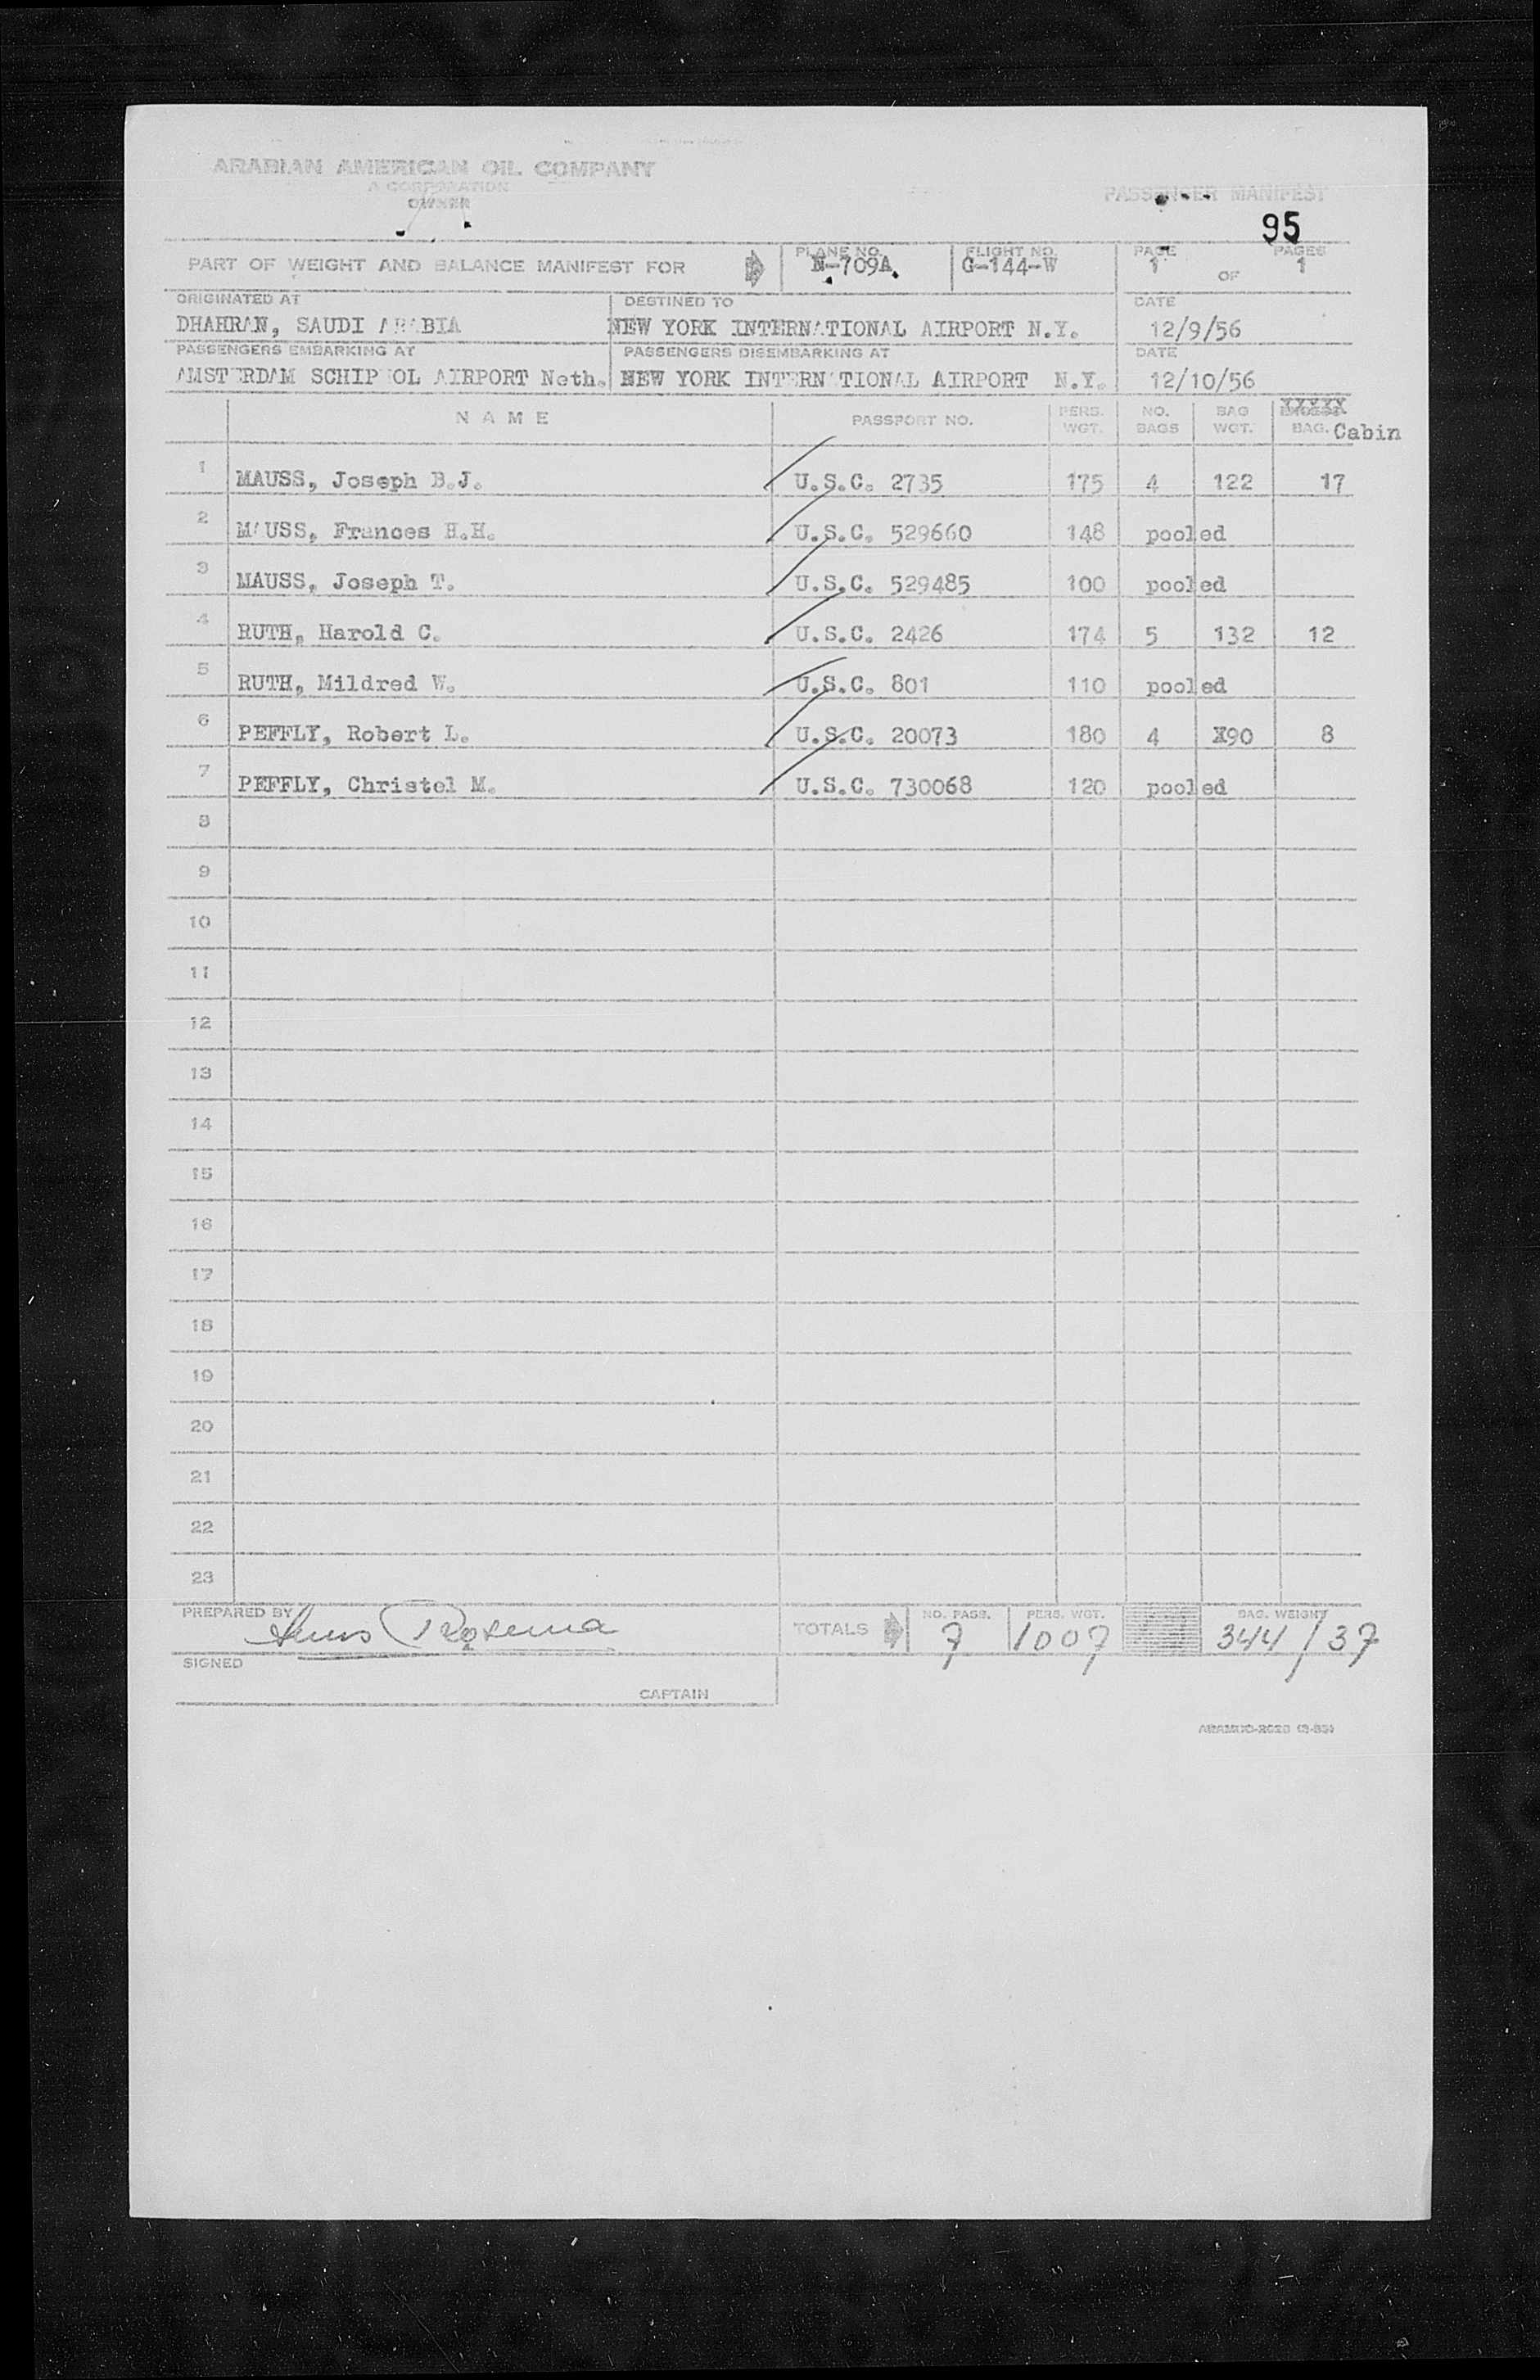 ARABIAN AMERICAN OIL COMPANY
A CORPORATION
OWNER
PASSENGER MANIFEST
95
PART OF WEIGHT AND BALANCE MANIFEST FOR
PLANE NO. N-709A
FLIGHT NO. G-144-W
PAGE 1 OF PAGES 1
ORIGINATED AT DESTINED TO DATE
DHAHRAN, SAUDI ARABIA NEW YORK INTERNATIONAL AIRPORT N.Y. 12/9/56
PASSENGERS EMBARKING AT PASSENGERS DISEMBARKING AT DATE
AMSTERDAM SCHIPHOL AIRPORT Neth. NEW YORK INTERNATIONAL AIRPORT N.Y. 12/10/56
NAME PASSPORT NO. PERS. WGT. NO. BAGS BAG WGT. XXXXX BAG. Cabin
1 MAUSS, Joseph B.J. U.S.C. 2735 175 4 122 17
2 MAUSS, Frances H.H. U.S.C. 529660 148 pooled
3 MAUSS, Joseph T. U.S.C. 529485 100 pooled
4 RUTH, Harold C. U.S.C. 2426 174 5 132 12
5 RUTH, Mildred W. U.S.C. 801 110 pooled
6 PEFFLY, Robert L. U.S.C. 20073 180 4 X90 8
7 PEFFLY, Christel M. U.S.C. 730068 120 pooled
8
9
10
11
12
13
14
15
16
17
18
19
20
21
22
23
PREPARED BY
TOTALS NO. PASS. 7 PERS. WGT. 1007 BAG. WEIGHT 344/37
SIGNED
CAPTAIN